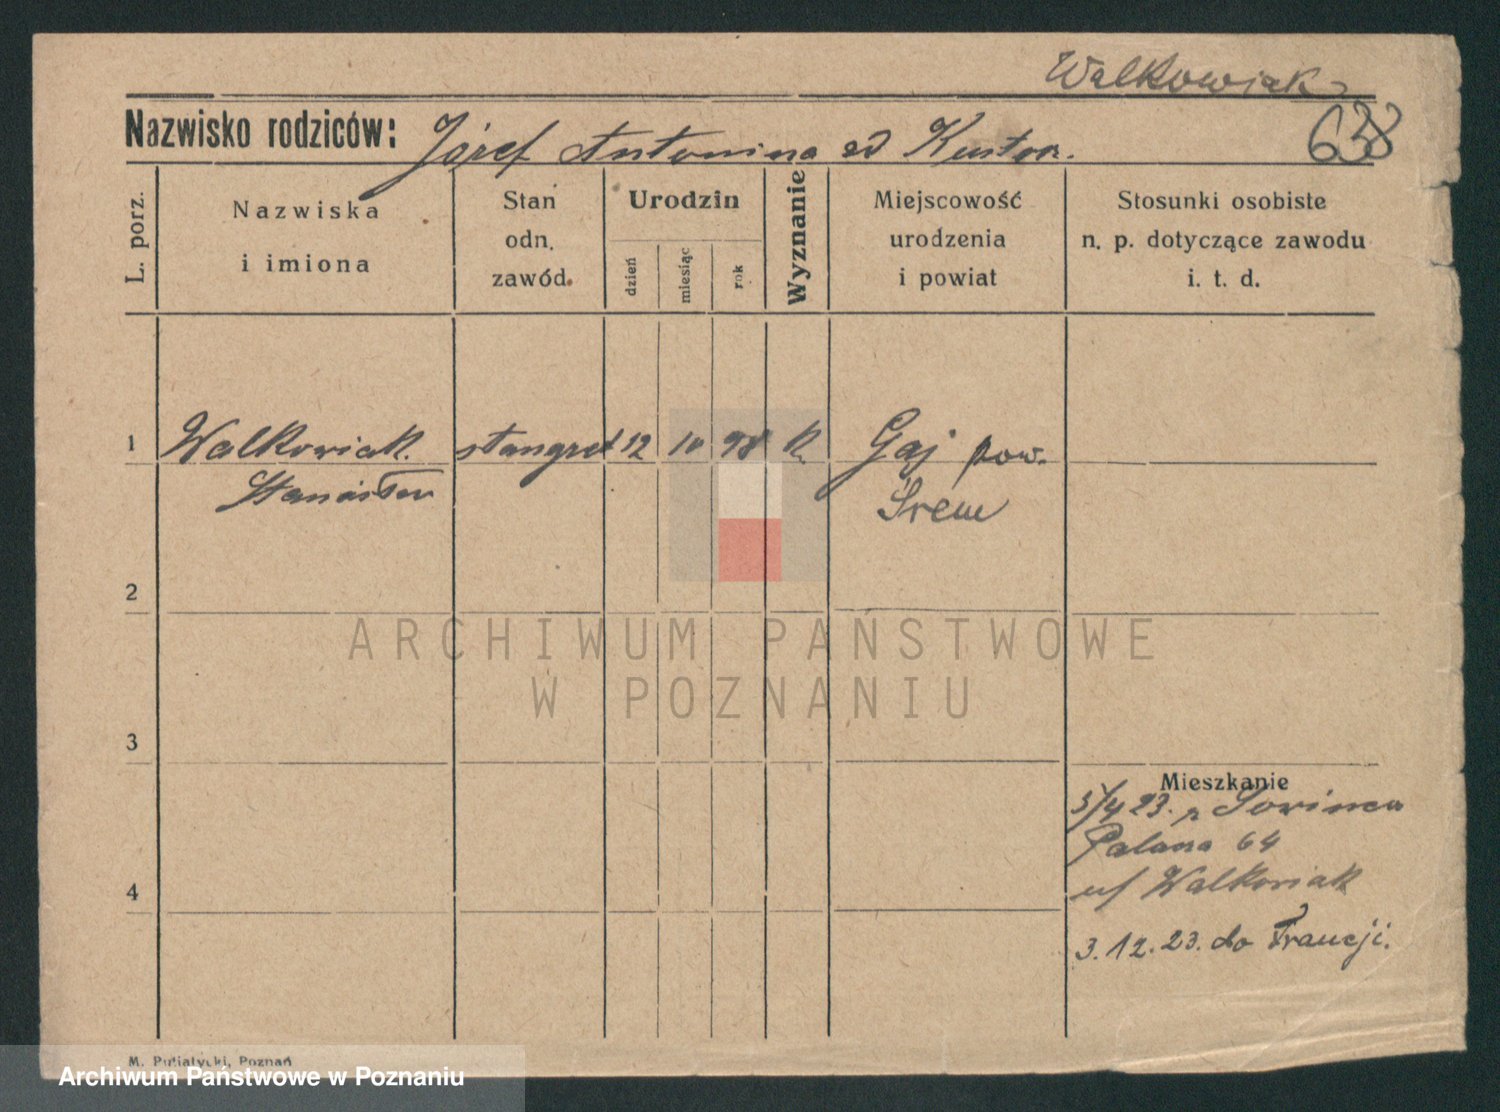 Walkowiak
Nazwisko rodziców: Józef Antonina
638
L. porz.
Nazwiska
i imiona
Stan
odn.
zawód.
Urodzin
dzień
miesiąc
rok
Wyznanie
Miejscowość
urodzenia
i powiat
Stosunki osobiste
n. p. dotyczące zawodu
i. t. d.
1 Walkowiak stangret 12 10 98 k. Gaj pow.
Stanisław Śrem
2
ARCHIWUM PAŃSTWOWE
W POZNANIU
3
Mieszkanie
3/4 23. z Sowińca
64
4
u/ Walkowiak
3.12.23. do Francji.
M. Putiatycki, Poznań
Archiwum Państwowe w Poznaniu